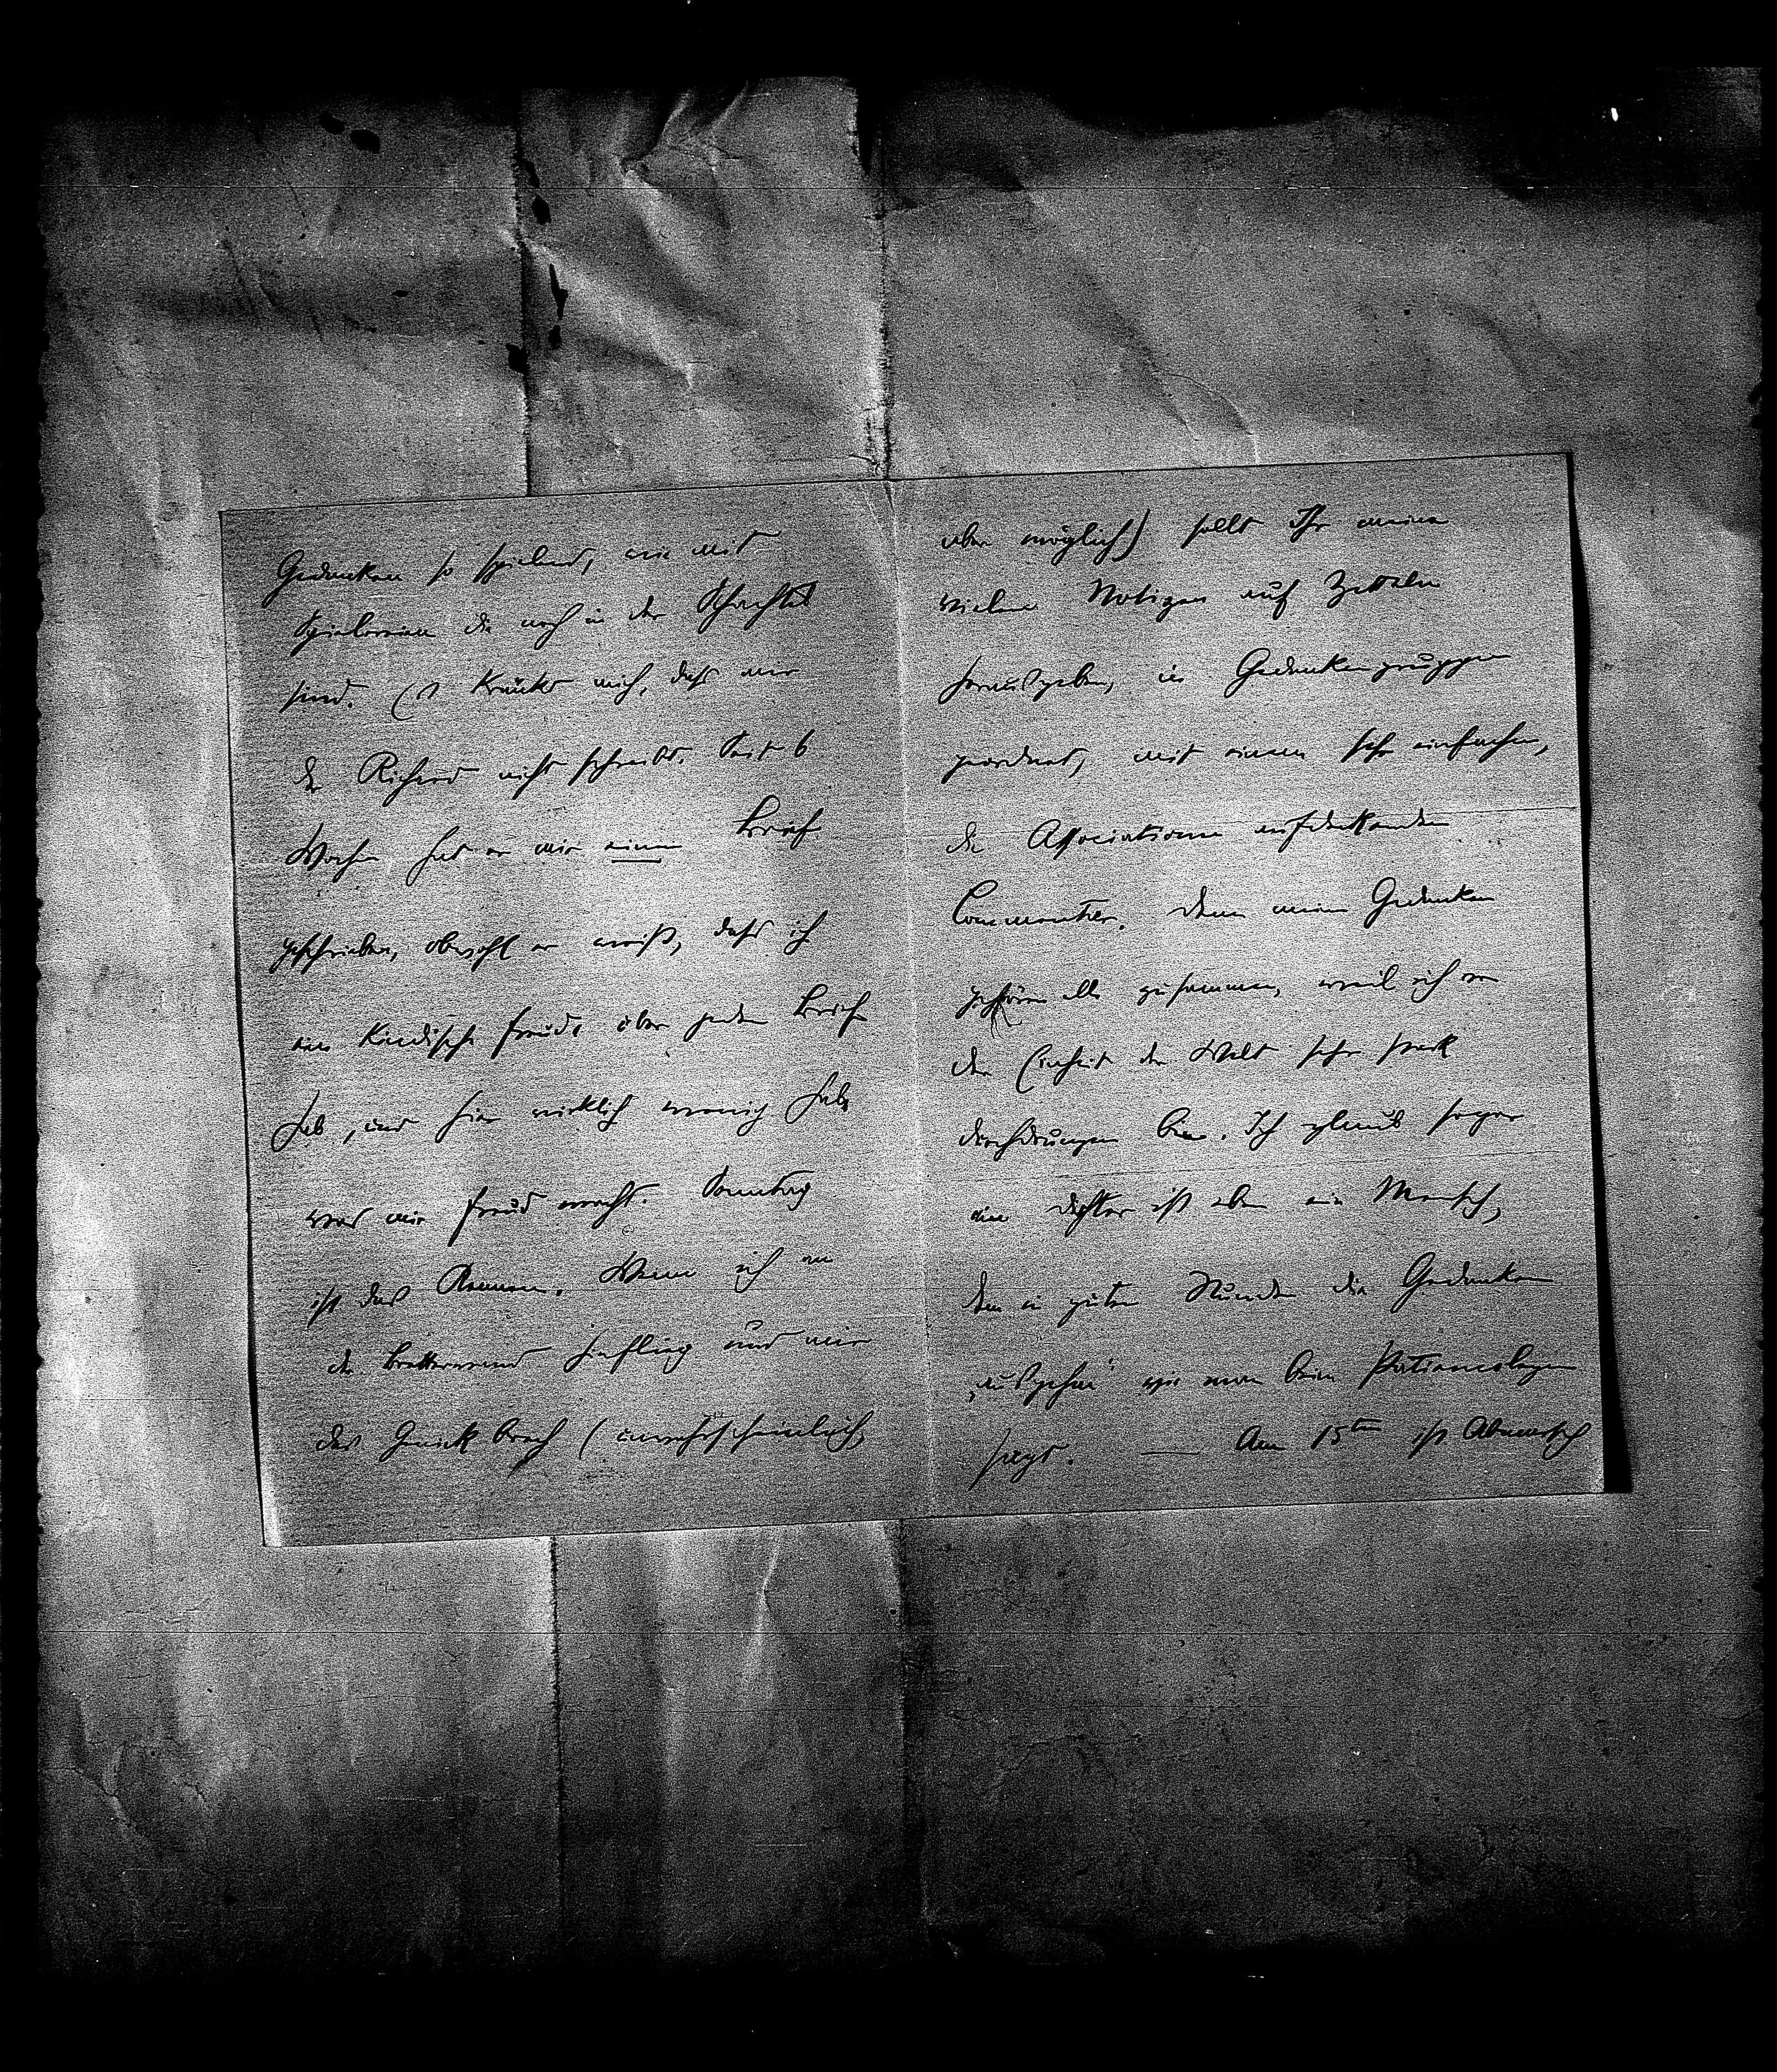 Gedanken so spielend, wie mit
Spielereien die noch in der Schachtel
sind. Es kränkt mich, dass mir
der Richard nicht schreibt. Seit 6
Wochen hat er mir einen Brief
geschrieben, obwohl er weiß, dass ich
eine kindische Freude über jeden Brief
hab, und hier wirklich wenig hab,
was mir Freud macht. Sonntag
ist das Rennen. Wenn ich an
der Bretterwand hinflieg und mir
das Genick brech (unwahrscheinlich,
aber möglich) sollt Ihr meine
vielen Notizen auf Zetteln
herausgeben, in Gedankengruppen
geordnet, mit einem sehr einfachen,
die Associationen aufdeckenden
Commentar. Denn meine Gedanken
gehören alle zusammen, weil ich von
der Einheit der Welt sehr stark
durchdrungen bin. Ich glaub sogar
ein Dichter ist eben ein Mensch,
dem in guten Stunden die Gedanken
„ausgehen“ wie man beim Patiencelegen
sagt. — Am 15ten ist Abmarsch